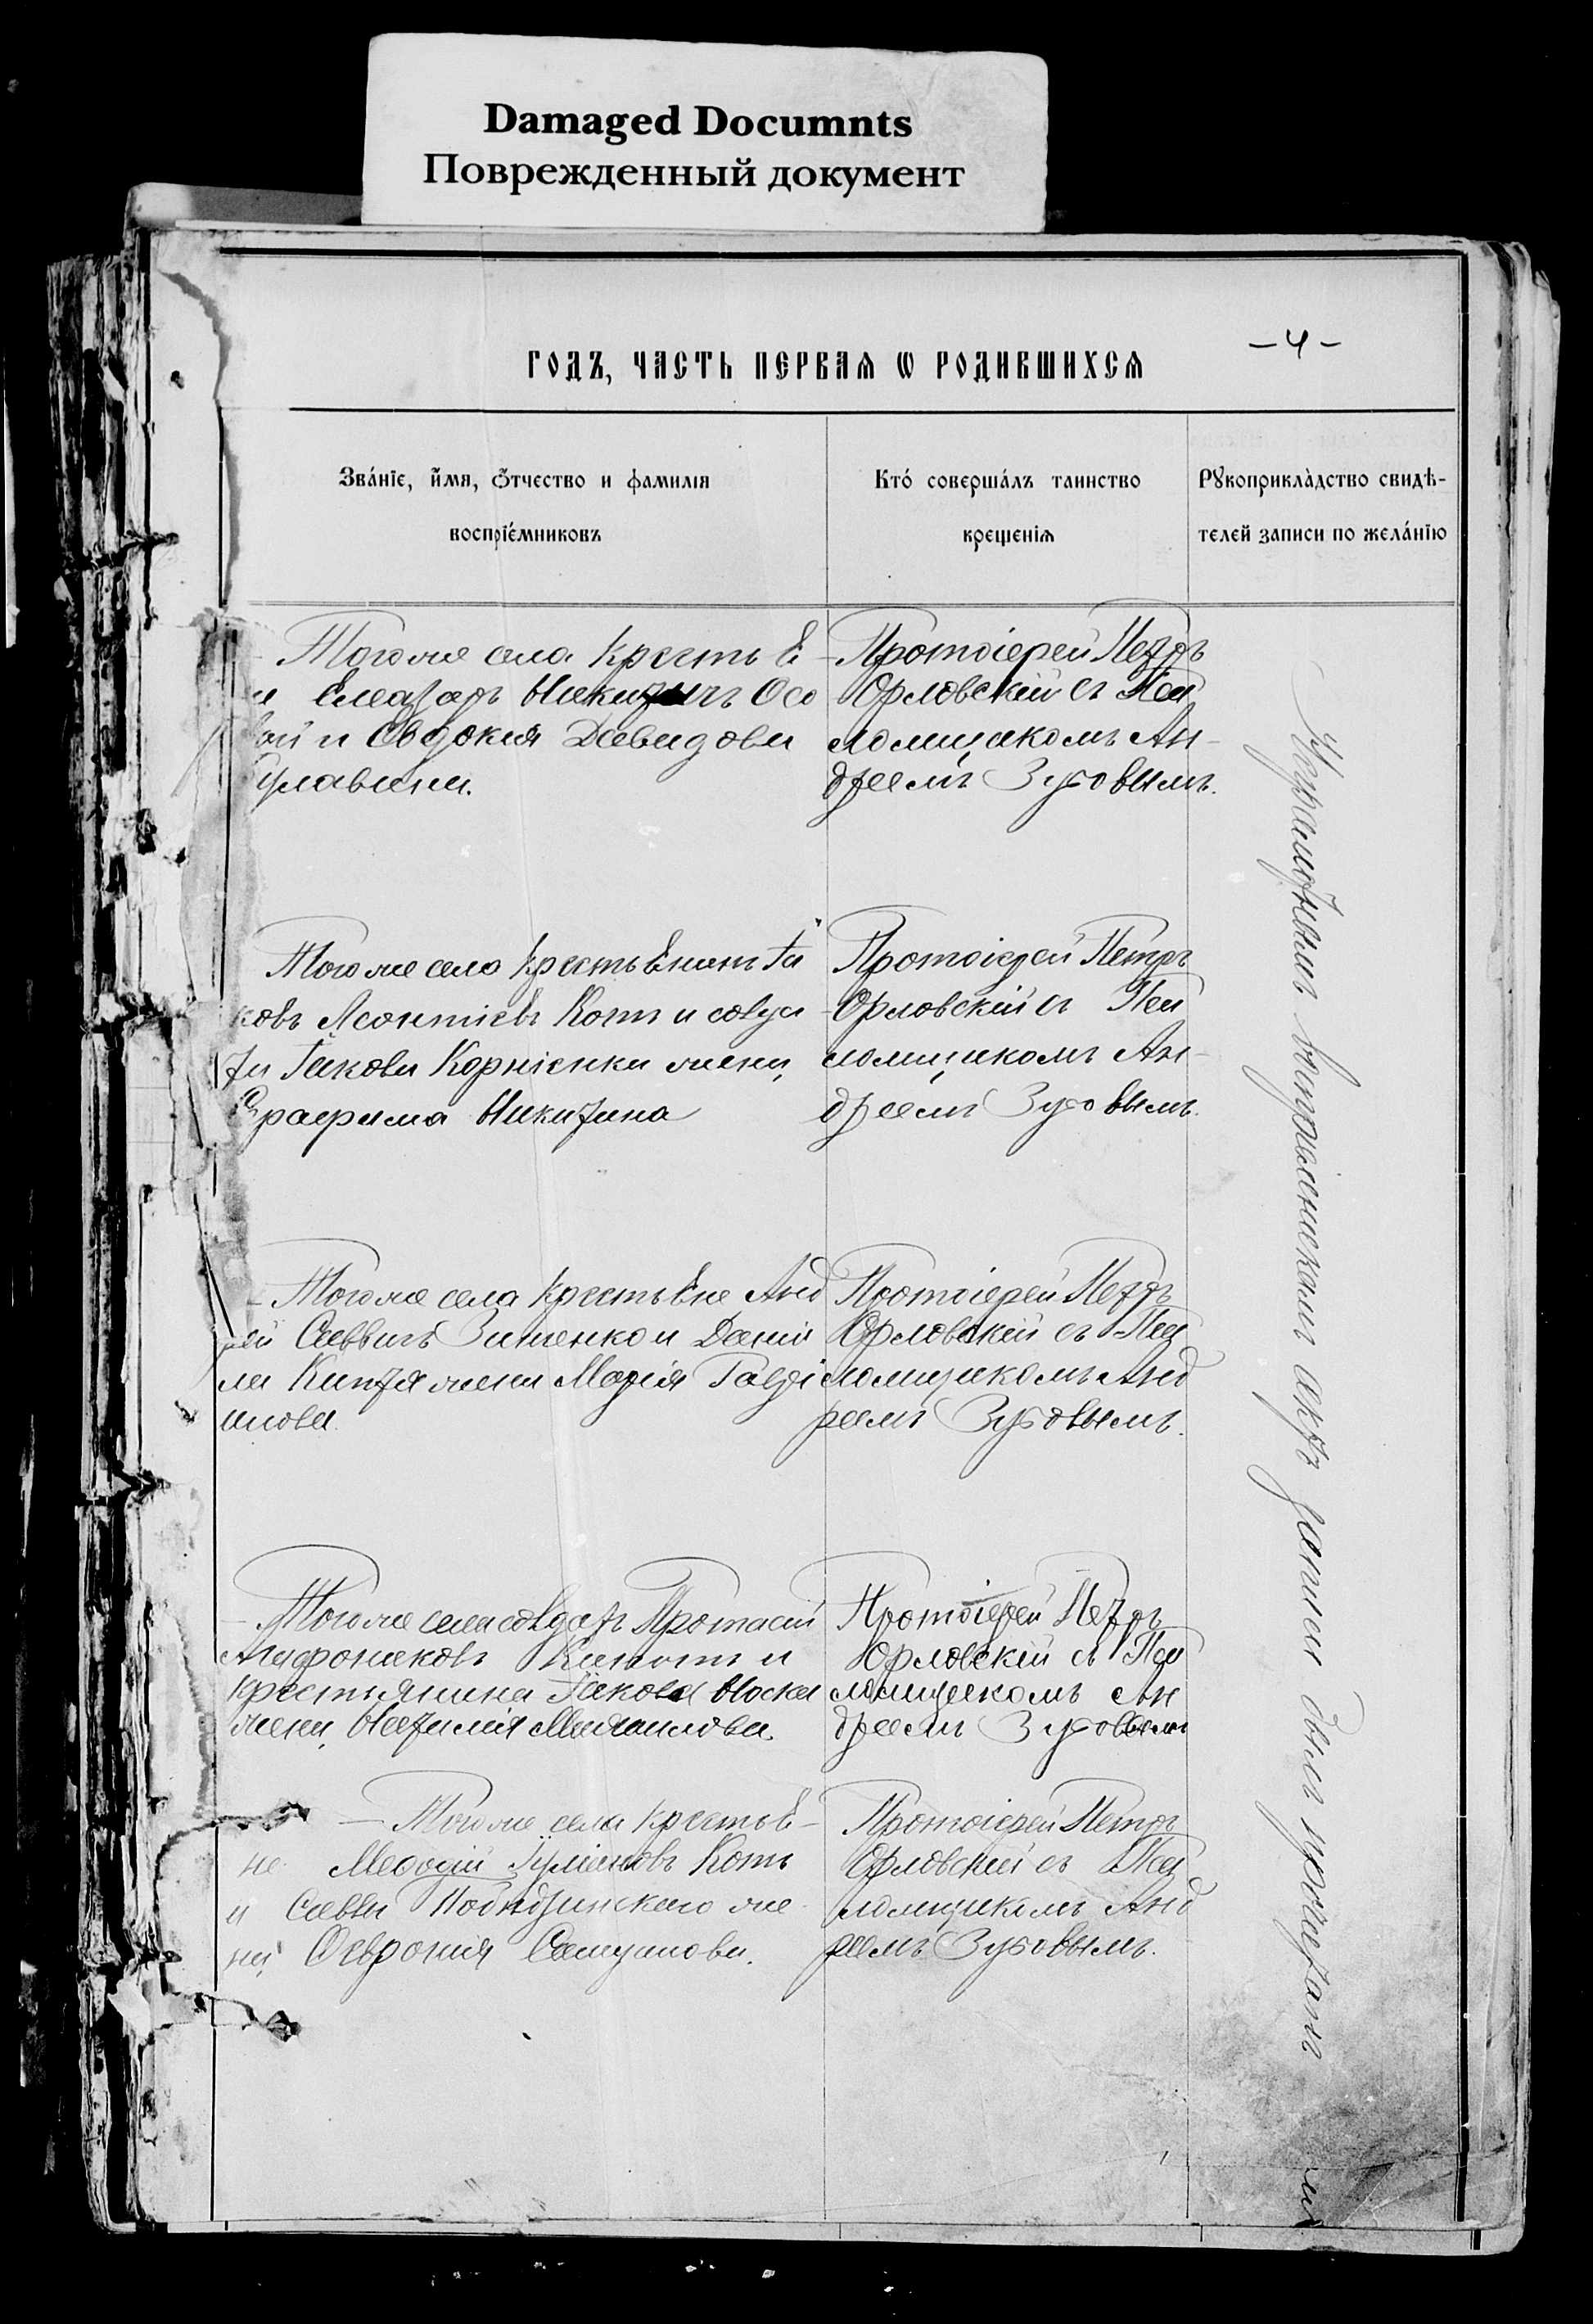 Damaged Documnts
Поврежденный документ
-4-
годъ, часть первая ѡ родившихсѧ
Зва́нїе, и́мя, ѻ҆тчество и фамилія
воспрїе́мниковъ
Кто́ соверша́лъ таинство
крещенїѧ
Рꙋкоприкла̀дство свидѣ-
телей записи по жела́нїю
Тогоже села крестьѣ
Елеазаръ Никитичъ Осо
и Евдокия Давидова
Протоіерей Петръ
Орловскій съ Пса
ломщикомъ Ан-
дреемъ Зубовымъ.
Тогоже села крестьѣнинъ Іа
ковъ Леонтіевъ Котъ и солда
та Іакова Корніенки жена
Серафима Никитина
Протоіерей Петръ
Орловскій съ Пса
ломщикомъ Ан-
дреемъ Зубовымъ.
Тогоже села крестьѣне Анд
рей Саввичъ Зитенко и Дані
ла жена Марія Гаврі
илова.
Протоіерей Петръ
Орловскій съ Пса
ломщикомъ Анд
реемъ Зубовымъ.
Тогоже села солдатъ Протасий
Агафониковъ и
крестьянина Іакова Носка
жена Наталія Михаилова
Протоіерей Петръ
Орловскій съ Пса
ломщикомъ Ан
дреемъ Зубовымъ
Тогоже села крестьѣ-
не Меѳодій Котъ
и Саввы же
на Февронія Самуилова.
Протоіерей Петръ
Орловскій съ Пса
ломщикомъ Анд
реемъ Зубовымъ.
актъ записи былъ прочитанъ